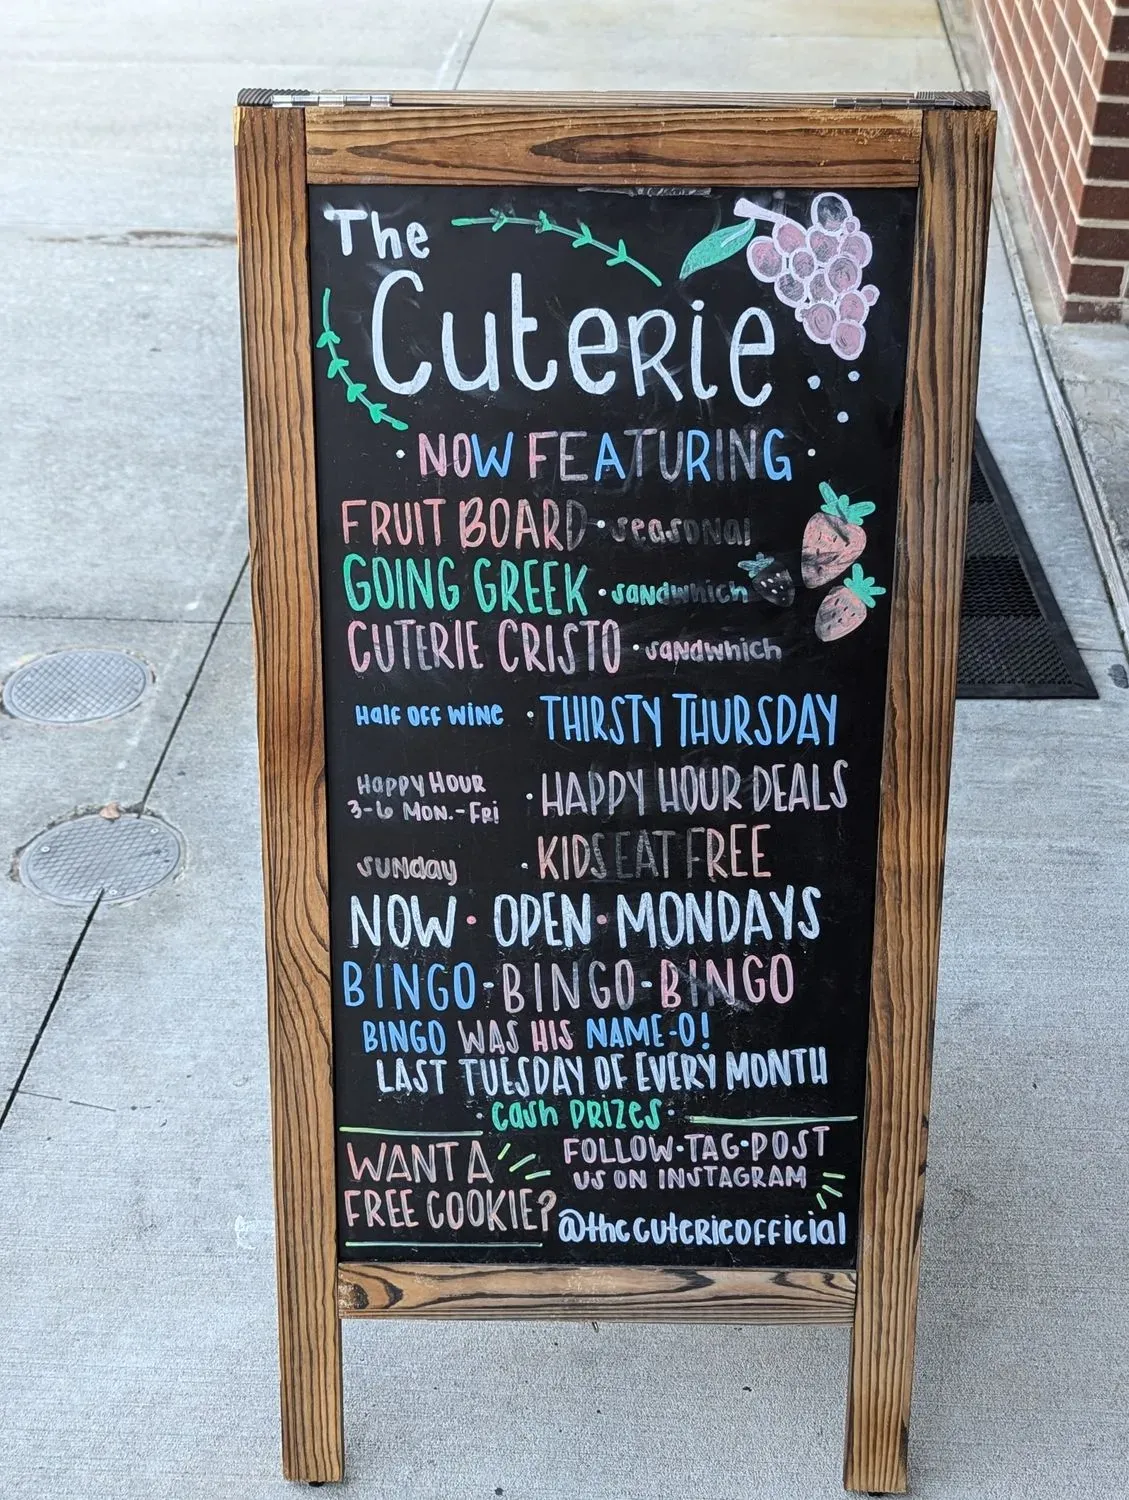 The
Cuterie
· NOW FEATURING ·
FRUIT BOARD · seasonal
GOING GREEK · sandwhich
CUTERIE CRISTO · sandwhich
Half OFF WINE · THIRSTY THURSDAY
Happy Hour
3-6 MON.-FRi · HAPPY HOUR DEALS
SUNday · KIDS EAT FREE
NOW · OPEN · MONDAYS
BINGO-BINGO-BINGO
BINGO WAS HIS NAME-O!
LAST TUESDAY OF EVERY MONTH
· Cash PRIZES ·
WANT A
FREE COOKIE?
FOLLOW·TAG·POST
US ON INSTAGRAM
@thecuterieofficial